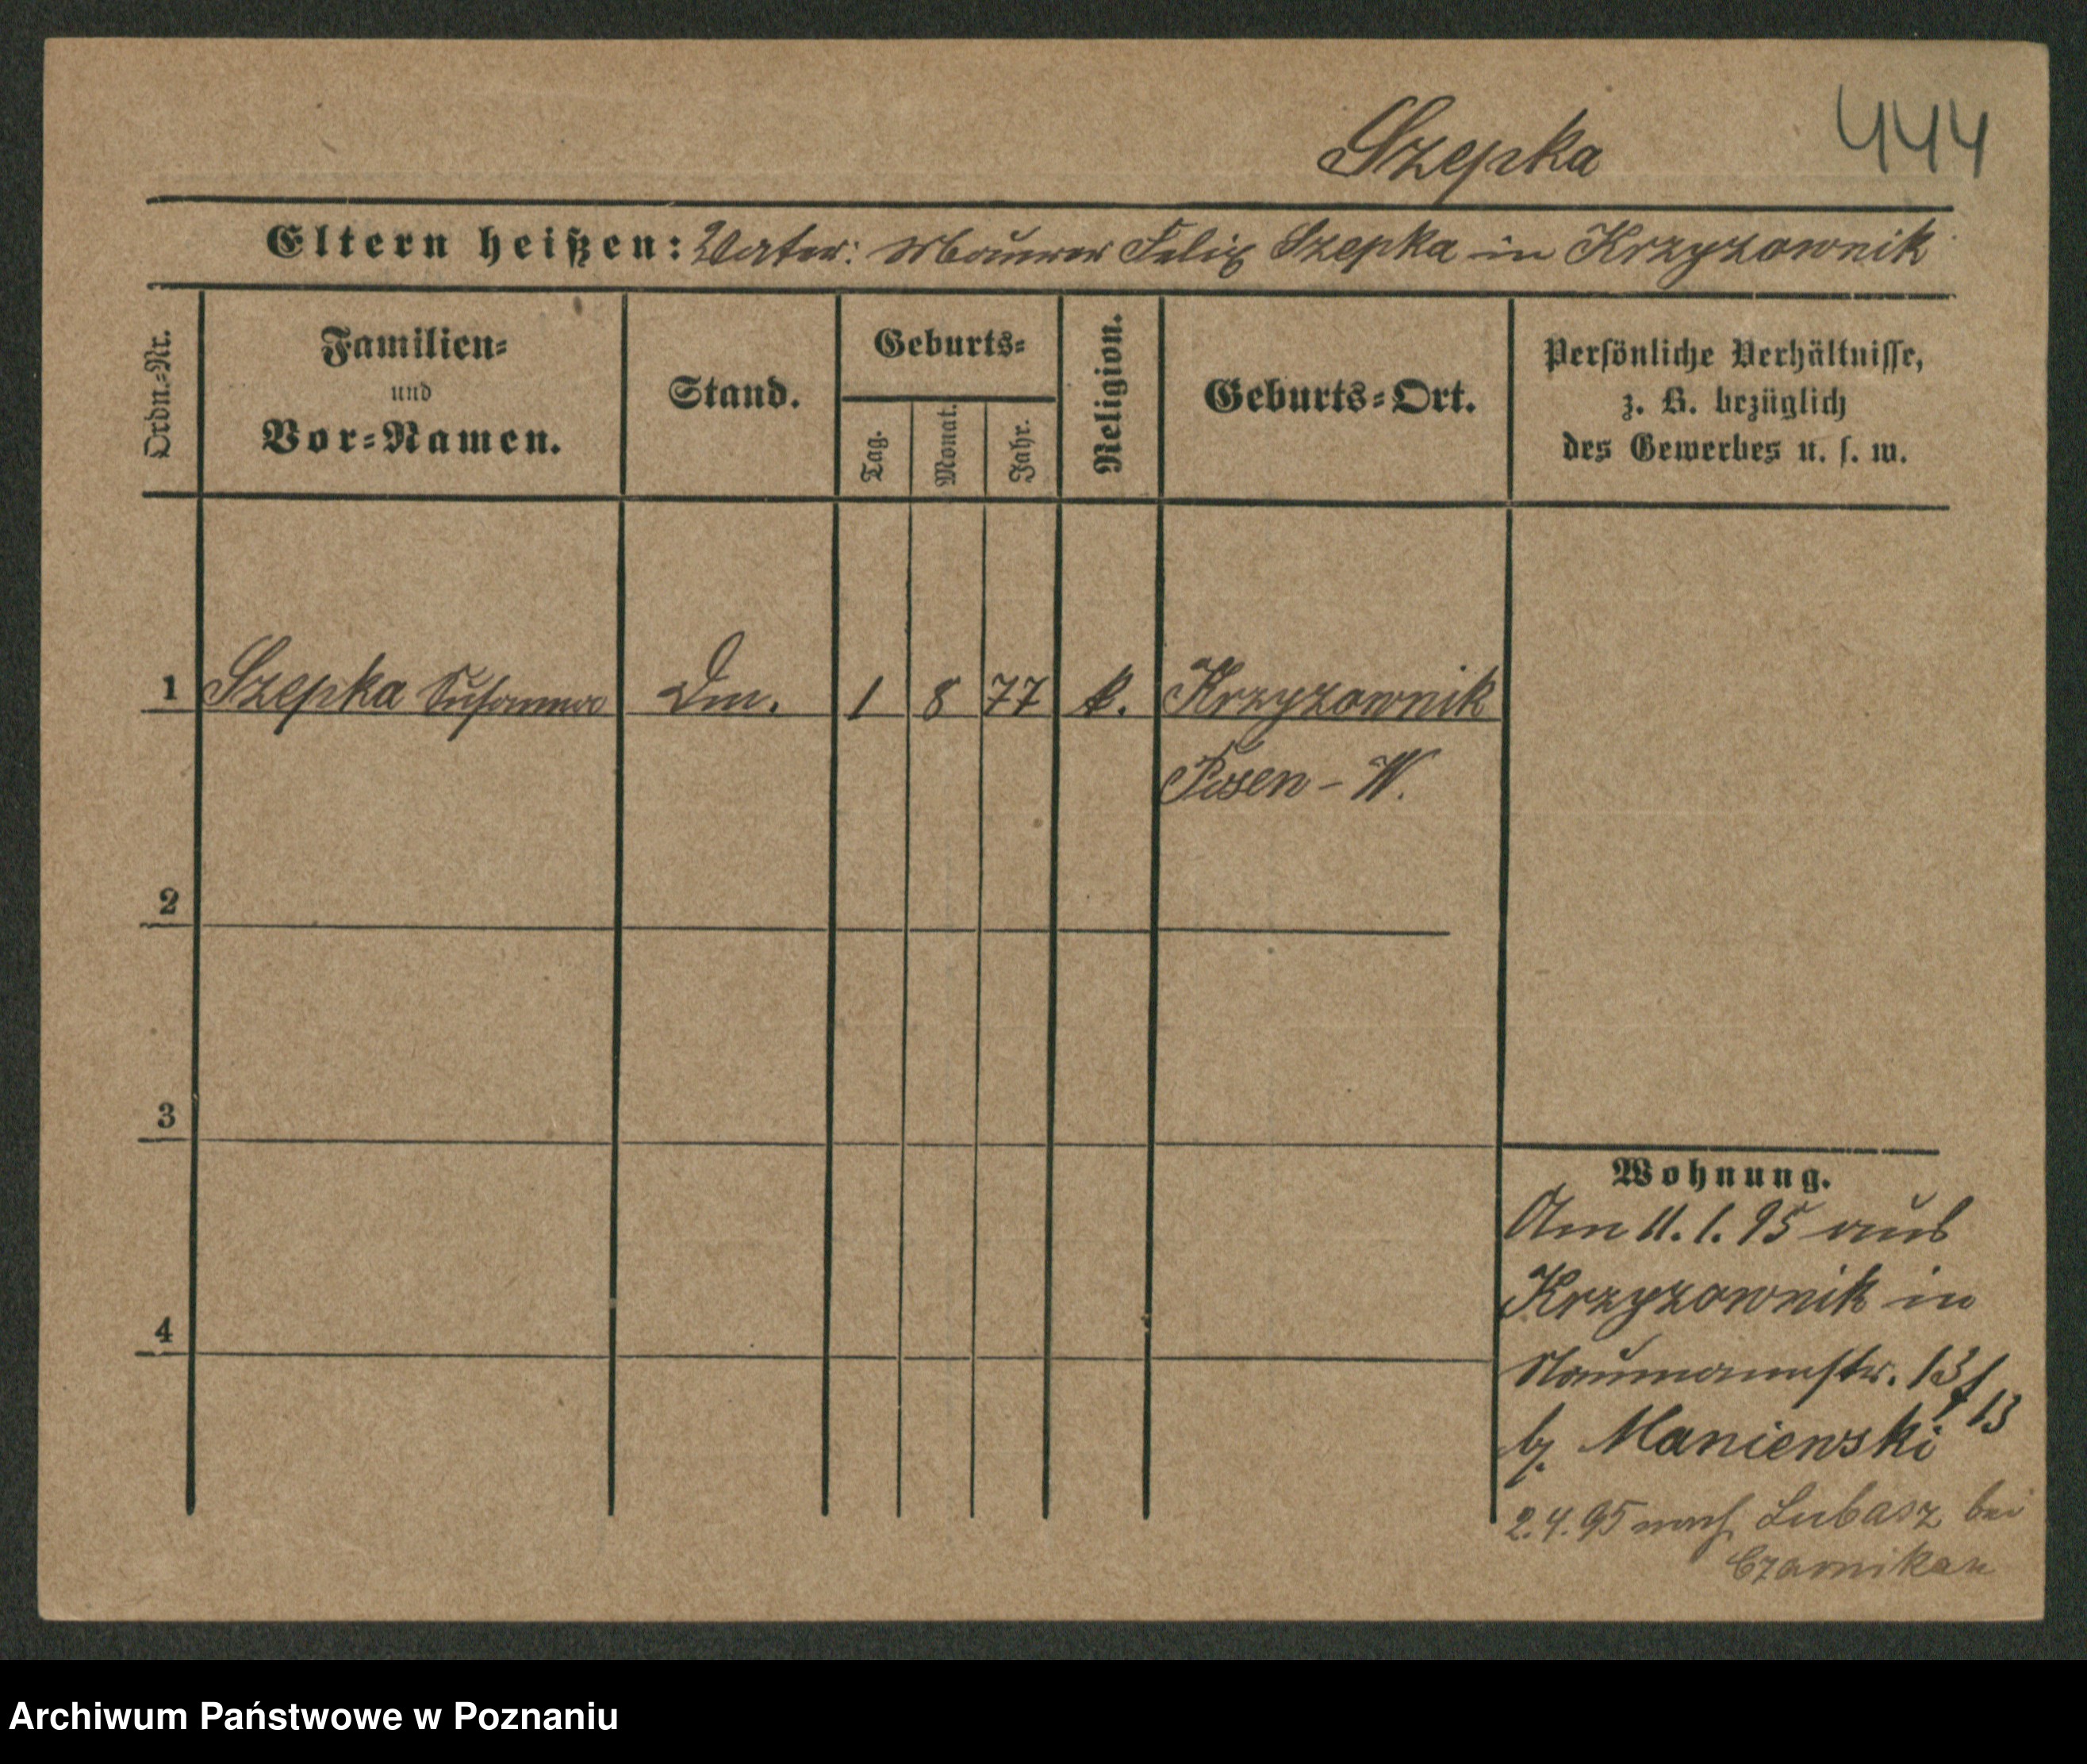 Szepka 444
Eltern heißen: Vater: Maurer Felix Szepka in Krzyzownik
Ordn.-Nr.
Familien-
und
Vor-Namen.
Stand.
Geburts-
Tag.
Monat.
Jahr.
Religion.
Geburts-Ort.
Persönliche Verhältnisse,
z. B. bezüglich
des Gewerbes u. s. w.
1 Szepka Susanna Dm. 1 8 77 k. Krzyzownik
Posen - W.
2
3
4
Wohnung.
Am 11.1.95 aus
Krzyzownik in
Naumannstr. 13
13
b. Maniewski
2.4.95 nach Lubasz bei
Czarnikau
Archiwum Państwowe w Poznaniu